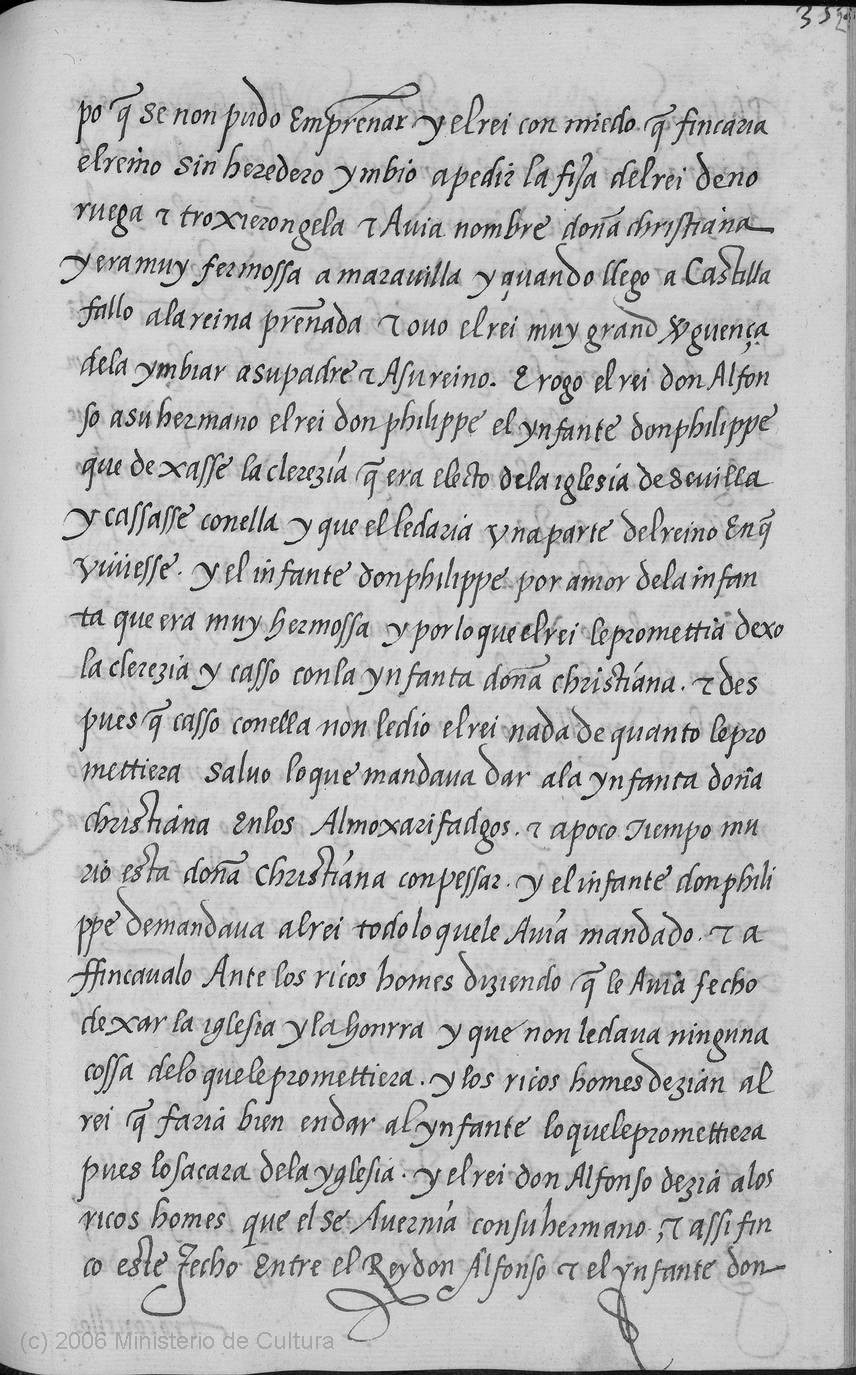 352
po q̃ se non pudo Emprenar y el rei con miedo q̃ fincaria
el reino sin heredero ymbio apedir la fija del rei deno
ruega ⁊ troxierongela ⁊ Avia nombre doña christiana
y era muy fermossa a maravilla y quando llego a Castilla
fallo ala reina preñada ⁊ ovo el rei muy grand ṽguença
dela ymbiar asu padre ⁊ Asu reino. E rogo el rei don Alfon
so asu hermano el rei don philippe el ynfante don philippe
que dexasse la clerezia q̃ era electo dela iglesia de Sevilla
y cassasse conella y que el ledaria vna parte del reino Enq̃
viviesse. y el infante don philippe por amor dela infan
ta que era muy hermossa y por lo que el rei le promettia dexo
la clerezia y casso conla ynfanta doña christiana. ⁊ des
pues q̃ casso conella non ledio el rei nada de quanto lepro
mettiera salvo lo que mandava dar ala ynfanta doña
christiana Enlos Almoxarifadgos. ⁊ apoco Tiempo mu
rio esta doña Christiana conpessar. y el infante don phili
ppe demandava al rei todo lo quele Avia mandado. ⁊ a
ffincavalo Ante los ricos homes diziendo q̃ le Avia fecho
dexar la iglesia y la honrra y que non ledava ninguna
cossa delo quele promettiera. y los ricos homes dezian al
rei q̃ faria bien endar al ynfante lo quele promettiera
pues lo sacara dela yglesia. y el rei don Alfonso dezia alos
ricos homes que el se Avernia consu hermano, ⁊ assi fin
co este fecho Entre el Rey don Alfonso ⁊ el ynfante don
(c) 2006 Ministerio de Cultura